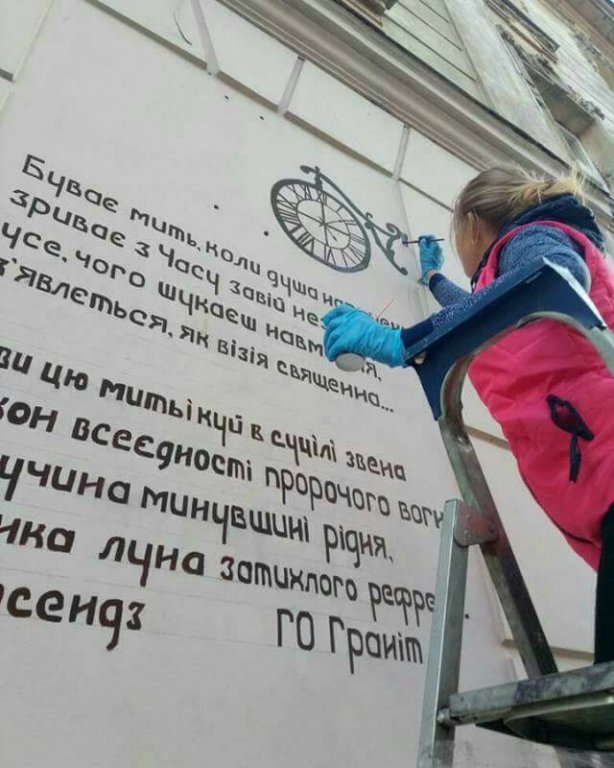 Буває мить, коли душа
зриває з Часу завій
усе, чого шукаєш
з'явлється, як візія священна...
ви цю мить і куй в суцілі звена
кон всеєдності пророчого вогн
учина минувщині рідня,
ика луна затихлого рефре
рсендз ГО Граніт